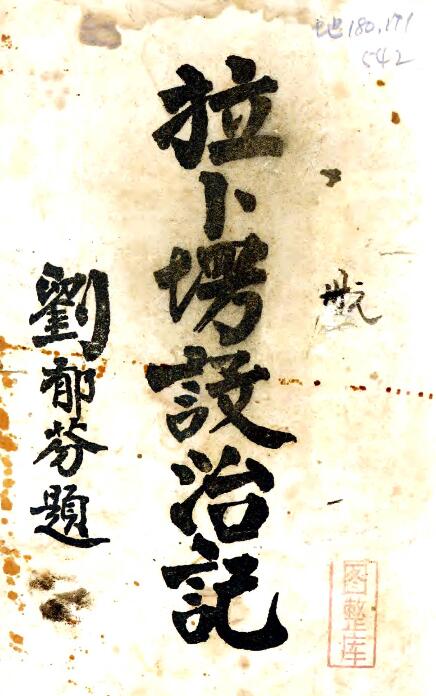 地180.171
542
拉卜塄設治記
劉郁芬題
图整库